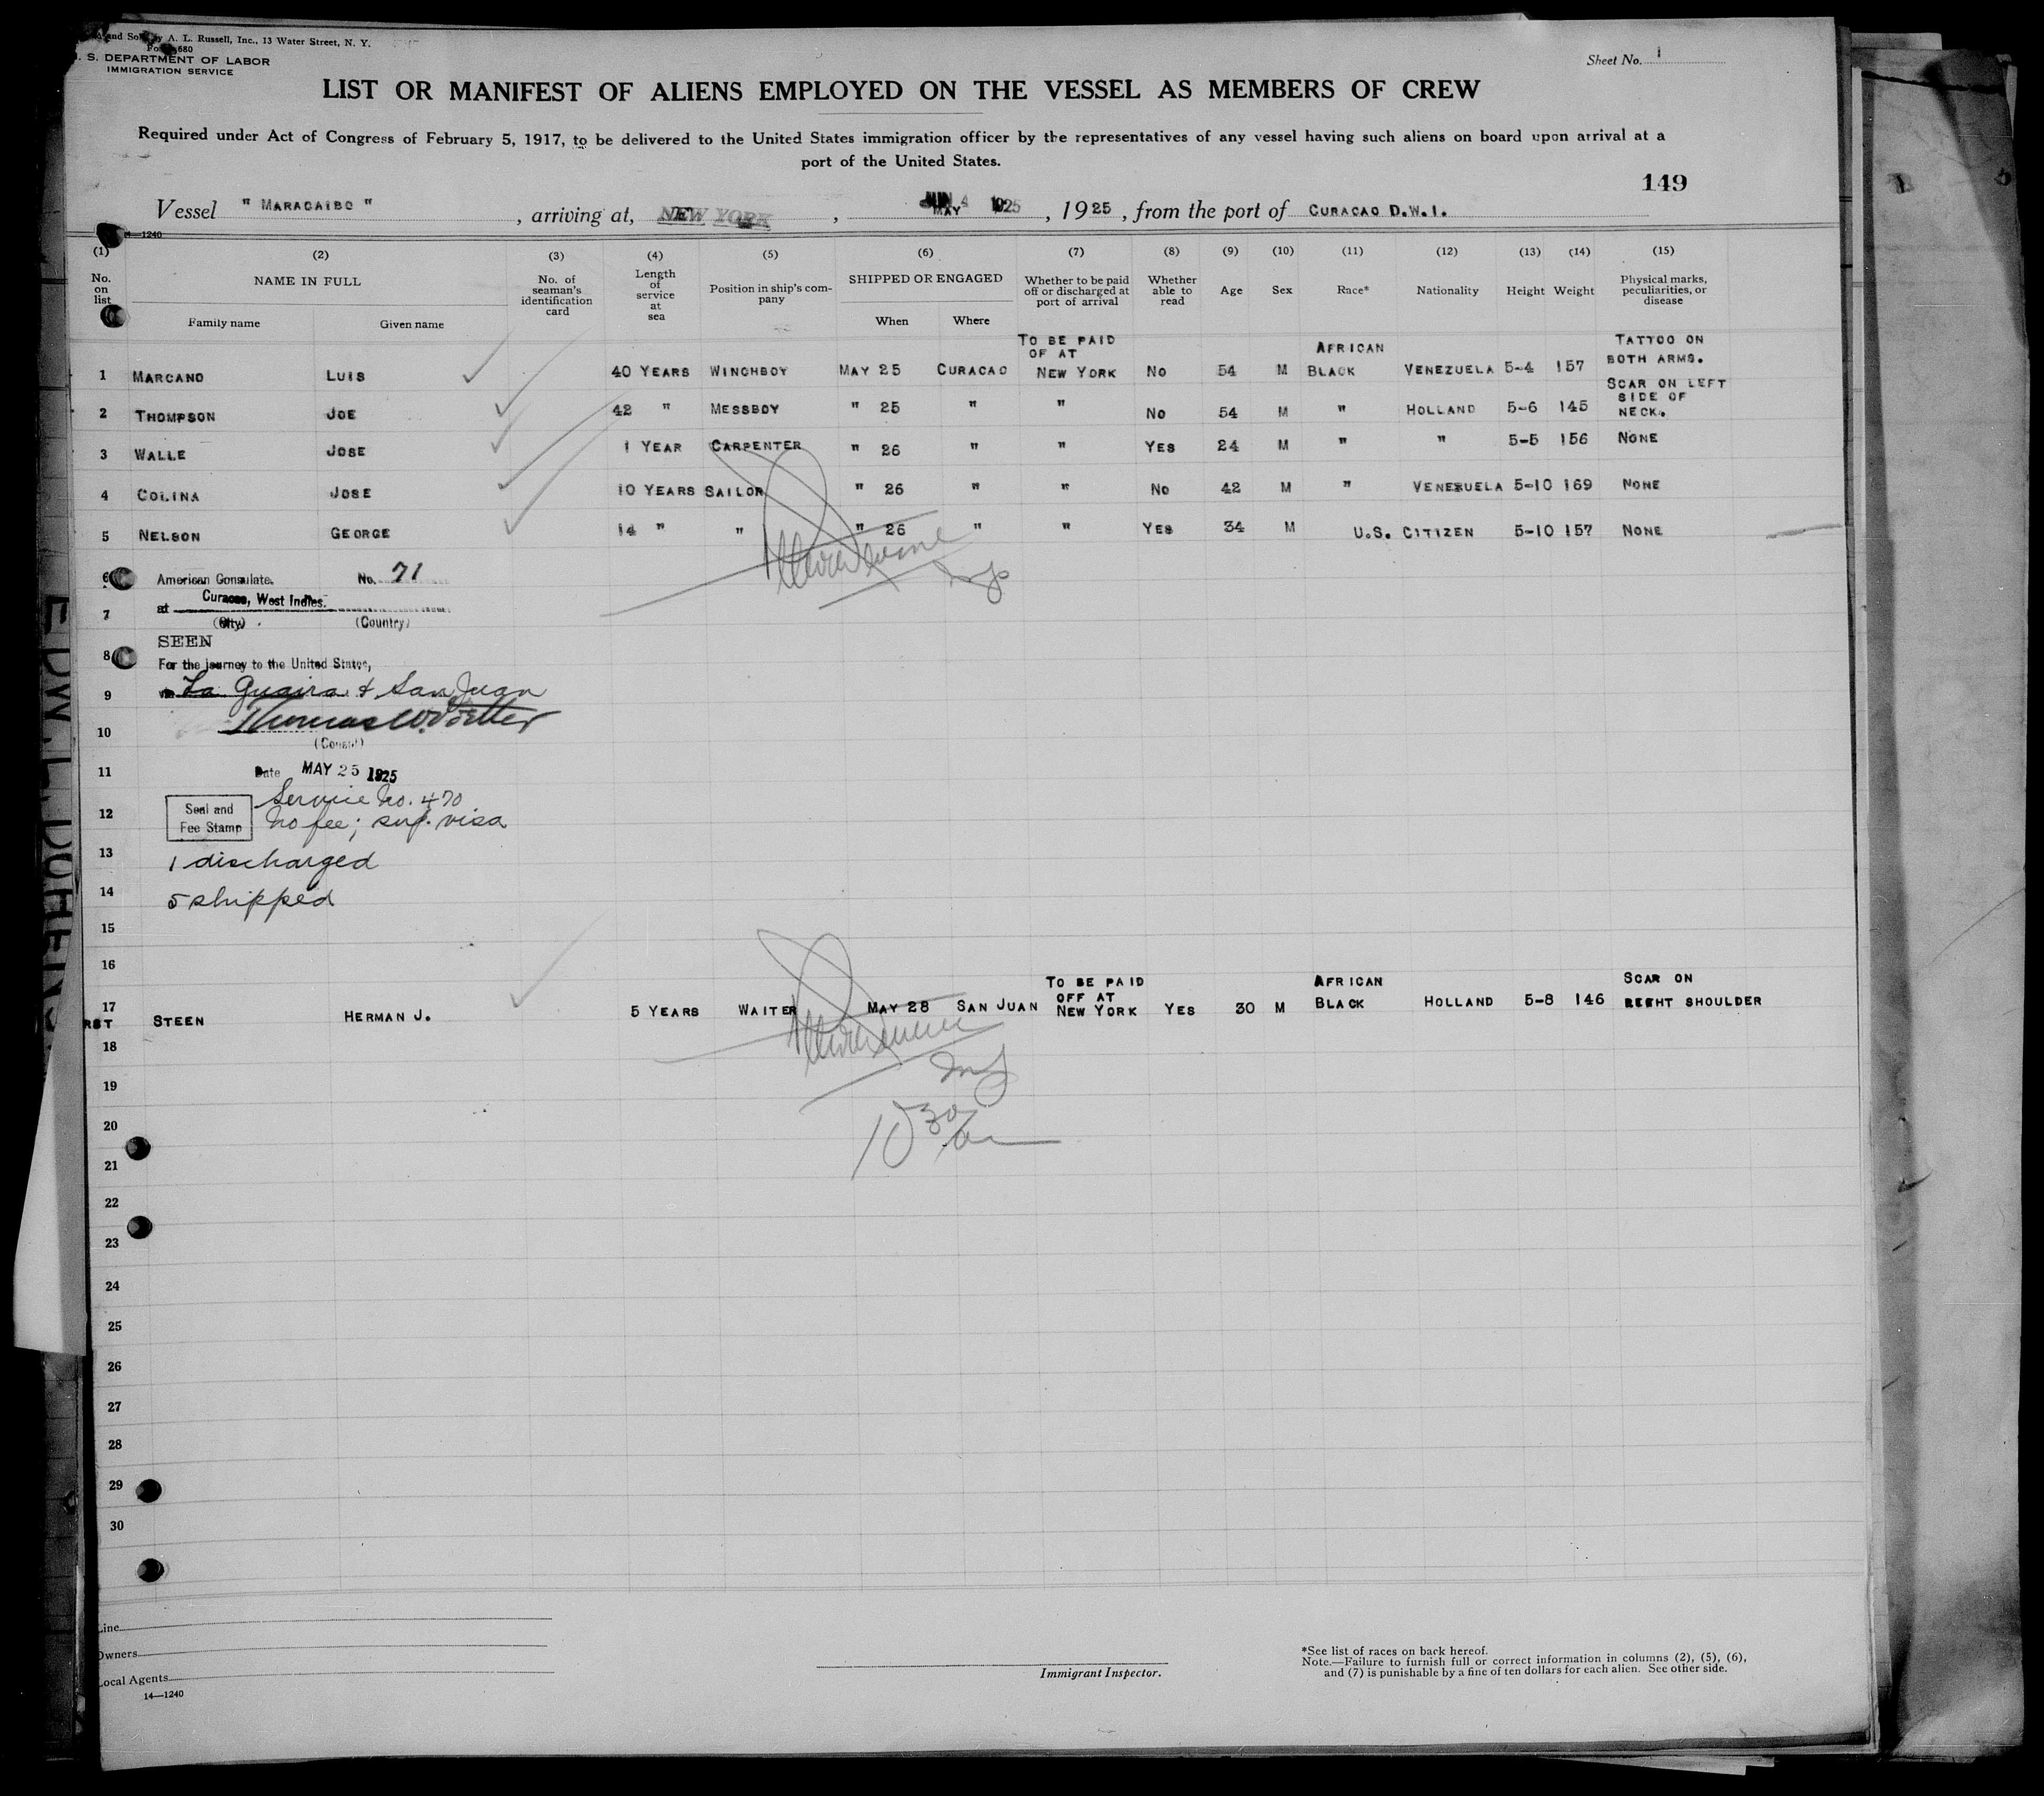 and Sold by A. L. Russell, Inc., 13 Water Street, N. Y.
Form 680
U. S. DEPARTMENT OF LABOR
IMMIGRATION SERVICE
Sheet No. 1
LIST OR MANIFEST OF ALIENS EMPLOYED ON THE VESSEL AS MEMBERS OF CREW
Required under Act of Congress of February 5, 1917, to be delivered to the United States immigration officer by the representatives of any vessel having such aliens on board upon arrival at a
port of the United States.
149
Vessel " MARACAIBO " , arriving at, NEW YORK , JUN 4 1925 MAY , 1925 , from the port of CURACAO D.W.I.
14—1240
(1) (2) (3) (4) (5) (6) (7) (8) (9) (10) (11) (12) (13) (14) (15)
No. on list NAME IN FULL No. of seaman's identification card Length of service at sea Position in ship's company SHIPPED OR ENGAGED Whether to be paid off or discharged at port of arrival Whether able to read Age Sex Race* Nationality Height Weight Physical marks, peculiarities, or disease
Family name Given name When Where
1 MARCANO LUIS 40 YEARS WINCHBOY MAY 25 CURACAO TO BE PAID OF AT NEW YORK NO 54 M AFRICAN BLACK VENEZUELA 5-4 157 TATTOO ON BOTH ARMS.
2 THOMPSON JOE 42 " MESSBOY " 25 " " NO 54 M " HOLLAND 5-6 145 SCAR ON LEFT SIDE OF NECK.
3 WALLE JOSE 1 YEAR CARPENTER " 26 " " YES 24 M " " 5-5 156 NONE
4 COLINA JOSE 10 YEARS SAILOR " 26 " " NO 42 M " VENEZUELA 5-10 169 NONE
5 NELSON GEORGE 14 " " " 26 " " YES 34 M U.S. CITIZEN 5-10 157 NONE
6 American Consulate. No. 71
7 at Curacao, West Indies.
(City) (Country)
8 SEEN
For the journey to the United States,
9 via La Guaira & San Juan
10 Thomas W. Voetter
(Consul)
11 Date MAY 25 1925
Service No. 470
12 Seal and Fee Stamp No fee; sup. visa
13 1 discharged
14 5 shipped
15
16
17 STEEN HERMAN J. 5 YEARS WAITER MAY 28 SAN JUAN TO BE PAID OFF AT NEW YORK YES 30 M AFRICAN BLACK HOLLAND 5-8 146 SCAR ON SHOULDER
RST
18
19
20
10 30 am
21
22
23
24
25
26
27
28
29
30
Line
Owners
Local Agents
14—1240
Immigrant Inspector.
*See list of races on back hereof.
Note.—Failure to furnish full or correct information in columns (2), (5), (6),
and (7) is punishable by a fine of ten dollars for each alien. See other side.